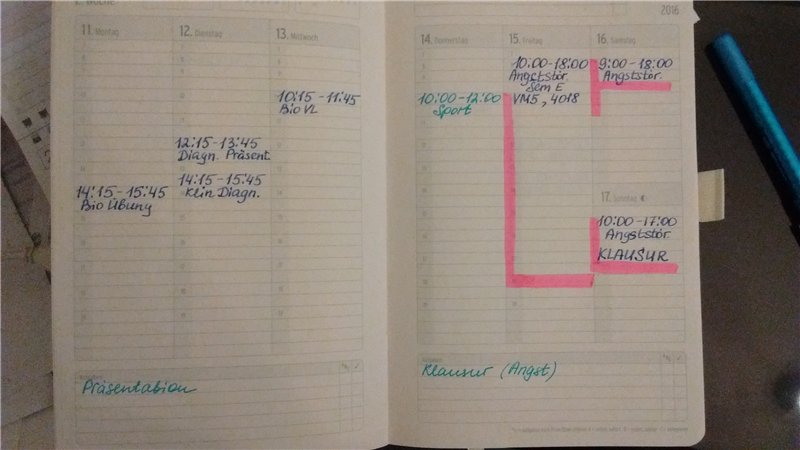 Woche
2016
11. Montag
12. Dienstag
13. Mittwoch
14:15-15:45
Bio Übung
12:15-13:45
Diagn. Präsent.
14:15-15:45
Klin Diagn.
10:15-11:45
Bio VL
Präsentation
14. Donnerstag
15. Freitag
16. Samstag
10:00-12:00
Sport
10:00-18:00
Angststör.
Sem E
VM5, 4018
9:00-18:00
Angststör.
17. Sonntag
10:00-17:00
Angststör.
KLAUSUR
Klausur (Angst)